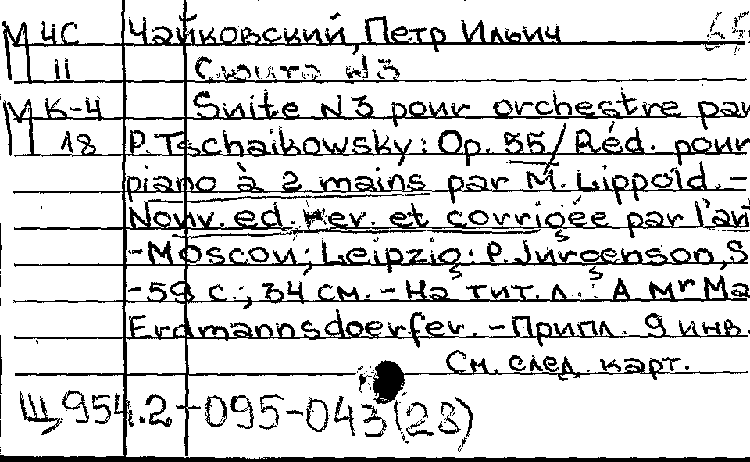 М ЧС Чайковский, Петр Ильич
11 Сюита N3
М К-4 Suite N3 pour orchestre par
18 P. Tschaikowsky: Op. 55/ Réd. pour
piano à 2 mains par M. Lippold.-
Nouv. ed. rev. et corrigée par l'au
-Moscou; Leipzig: P. Jurgenson, S
-59 с.; 34 см. - На тит. л.: A Mr Ma
Erdmannsdoerfer. - Припл. 9 инв.
См. след. карт.
Щ 954.2-095-043 (28)